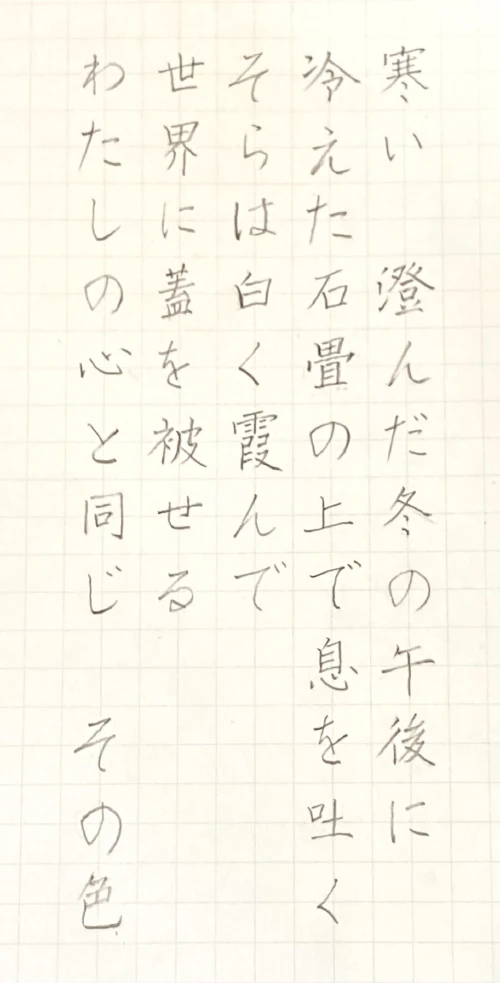 寒い　澄んだ冬の午後に
冷えた石畳の上で息を吐く
そらは白く霞んで
世界に蓋を被せる
わたしの心と同じ　その色